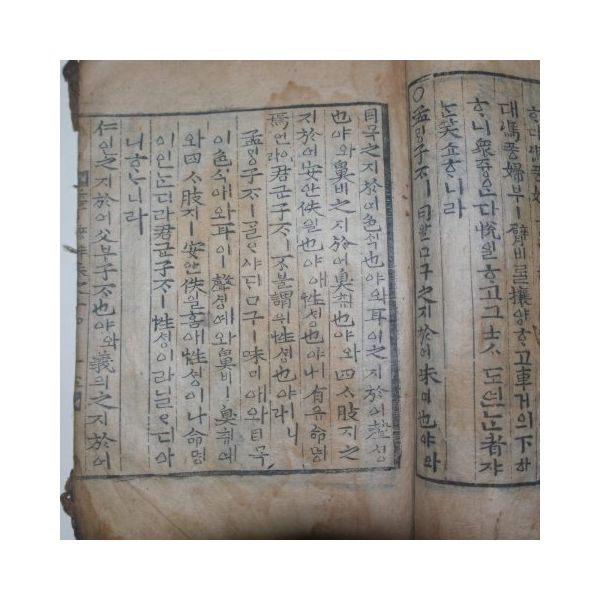 대馮풍婦부ㅣ臂비ᄅᆞᆯ攘양ᄒᆞ고車거의下하
ᄒᆞ니衆즁은다悅열ᄒᆞ고그士ᄉᆞ도연ᄂᆞᆫ者쟈
ᄂᆞᆫ笑쇼ᄒᆞ니라
○孟ᄆᆡᆼ子ᄌᆞㅣ曰왈口구之지於어味미也야와
目목之지於어色ᄉᆡᆨ也야와耳이之지於어聲셩
也야와鼻비之지於어臭ᄎᆔ也야와四ᄉᆞ肢지之
지於어安안佚일也야애性셩也야나有유命명
焉언이라君군子ᄌᆞㅣ不블謂위性셩也야ㅣ니라
孟ᄆᆡᆼ子ᄌᆞㅣᄀᆞᆯᄋᆞ샤ᄃᆡ口구ㅣ味미애와目목
이色ᄉᆡᆨ애와耳이ㅣ聲셩예와鼻비ㅣ臭ᄎᆔ예
와四ᄉᆞ肢지ㅣ安안佚일홈애性셩이나命명
이인ᄂᆞᆫ디라君군子ᄌᆞㅣ性셩이라닐ᄋᆞ디아
니ᄒᆞᄂᆞ니라
仁인之지於어父부子ᄌᆞ也야와義의之지於어